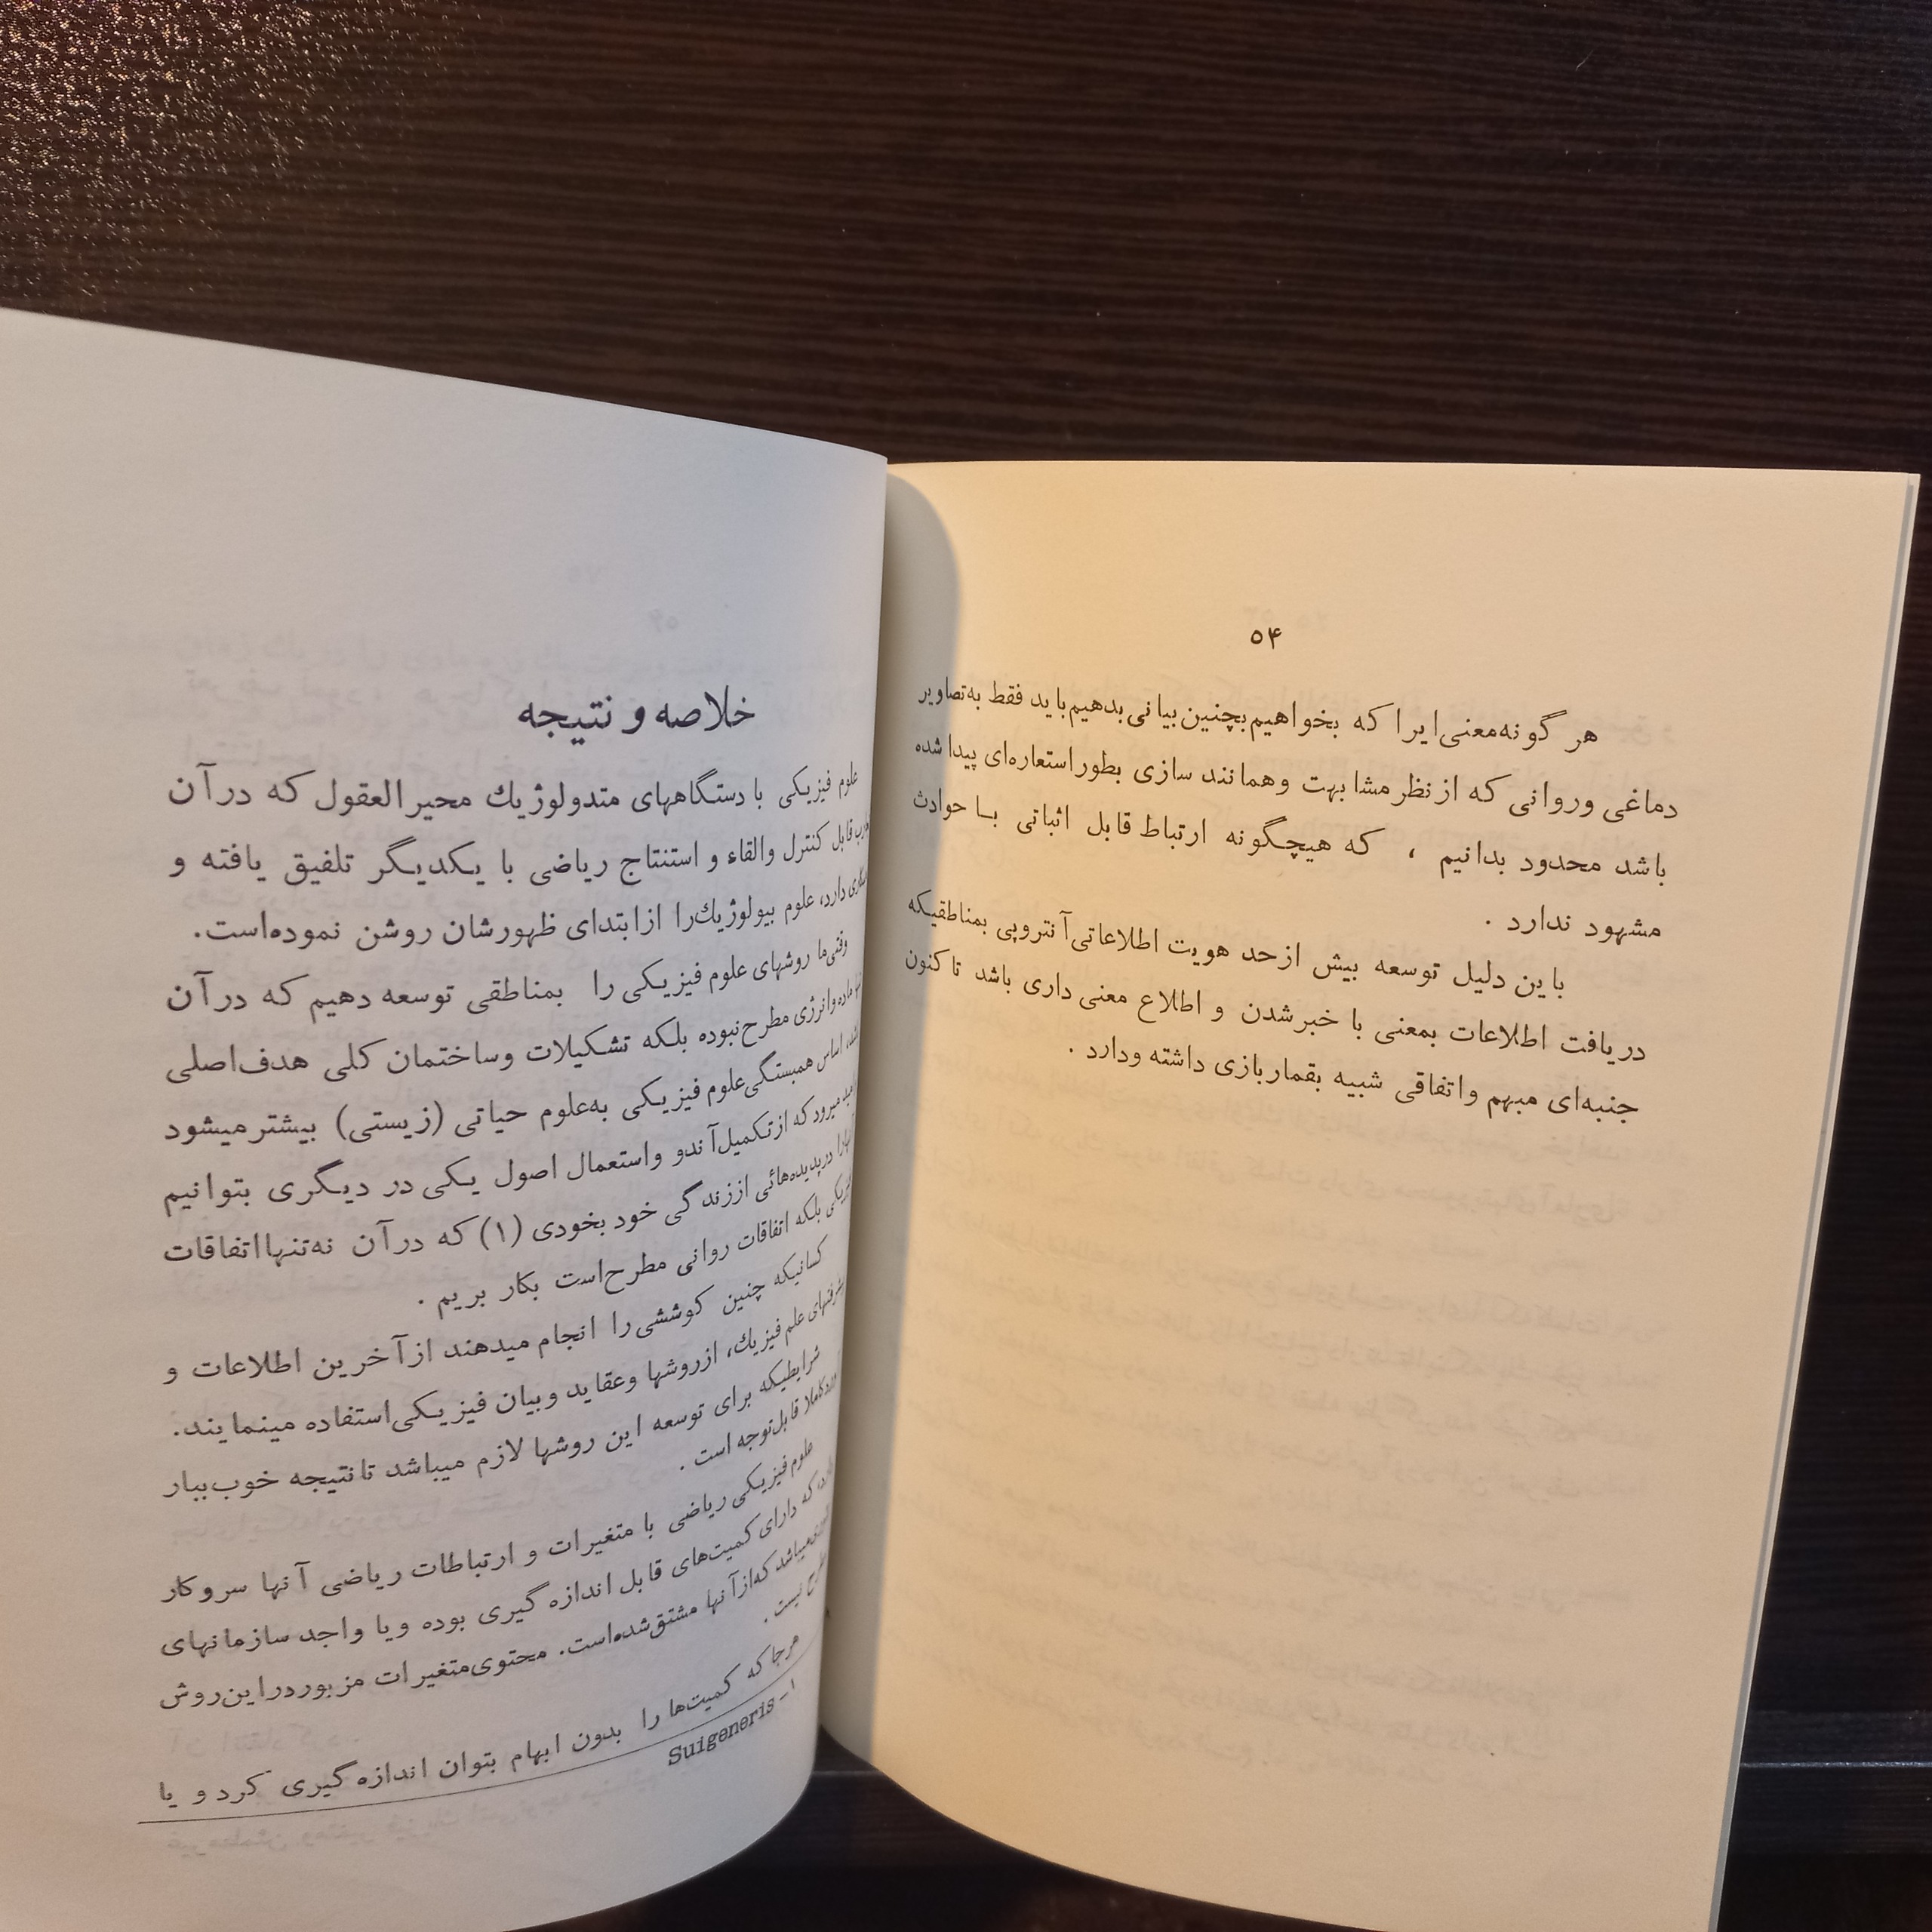 ۵۴
هر گونه‌معنی‌ایرا که بخواهیم‌بچنین‌بیانی‌بدهیم‌باید فقط به‌تصاویر
دماغی وروانی که ازنظرمشابهت وهمانند سازی بطوراستعاره‌ای پیداشده
باشد محدود بدانیم ، که هیچگونه ارتباط قابل اثباتی با حوادث
مشهود ندارد .
باین دلیل توسعه بیش ازحد هویت اطلاعاتی‌آنتروپی بمناطقیکه
دریافت اطلاعات بمعنی با خبرشدن و اطلاع معنی داری باشد تاکنون
جنبه‌ای مبهم واتفاقی شبیه بقماربازی داشته ودارد .
خلاصه و نتیجه
علوم فیزیکی با دستگاههای متدولوژیك محیرالعقول که درآن
قابل کنترل والقاء و استنتاج ریاضی با یکدیگر تلفیق یافته و
دارد، علوم بیولوژیك‌را ازابتدای ظهورشان روشن نموده‌است.
وقتی‌ما روشهای علوم فیزیکی را بمناطقی توسعه دهیم که درآن
ماده‌وانرژی مطرح‌نبوده بلکه تشکیلات وساختمان کلی هدف‌اصلی
اساس همبستگی‌علوم فیزیکی به‌علوم حیاتی (زیستی) بیشترمیشود
میرود که ازتکمیل‌آندو واستعمال اصول یکی در دیگری بتوانیم
درپدیده‌هائی اززندگی خود بخودی (۱) که درآن نه‌تنهااتفاقات
بلکه اتفاقات روانی مطرح‌است بکار بریم .
کسانیکه چنین کوششی‌را انجام میدهند ازآخرین اطلاعات و
علم فیزیك، ازروشها وعقاید وبیان فیزیکی‌استفاده مینمایند.
شرایطیکه برای توسعه این روشها لازم میباشد تانتیجه خوب‌ببار
کاملا قابل‌توجه است .
علوم‌فیزیکی ریاضی با متغیرات و ارتباطات ریاضی آنها سروکار
که دارای کمیت‌های قابل اندازه گیری بوده ویا واجد سازمانهای
میباشد که‌ازآنها مشتق‌شده‌است. محتوی‌متغیرات مزبوردراین‌روش
نیست .
هرجا که کمیت‌ها را بدون ابهام بتوان اندازه‌گیری کرد و یا
۱- Suigeneris